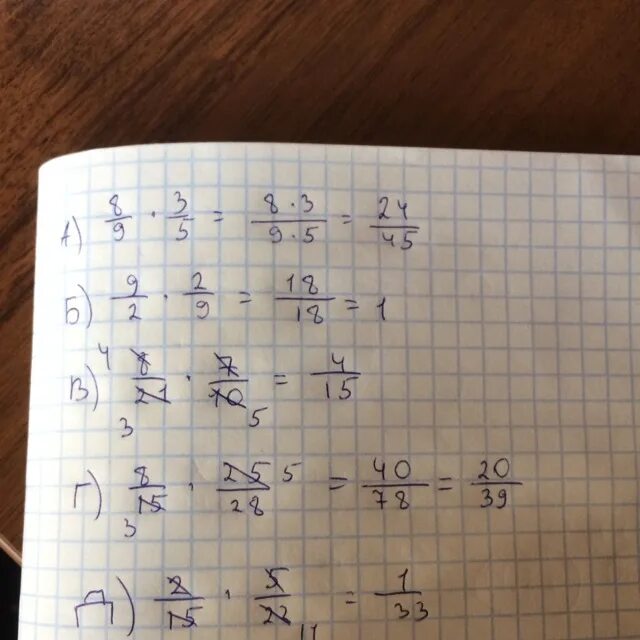 А) 8/9 · 3/5 = 8·3/9·5 = 24/45
Б) 9/2 · 2/9 = 18/18 = 1
В) 4 8/21 3 · 7/10 5 = 4/15
Г) 8/15 3 · 25/28 5 = 40/78 = 20/39
Д) 2/15 · 5/22 11 = 1/33